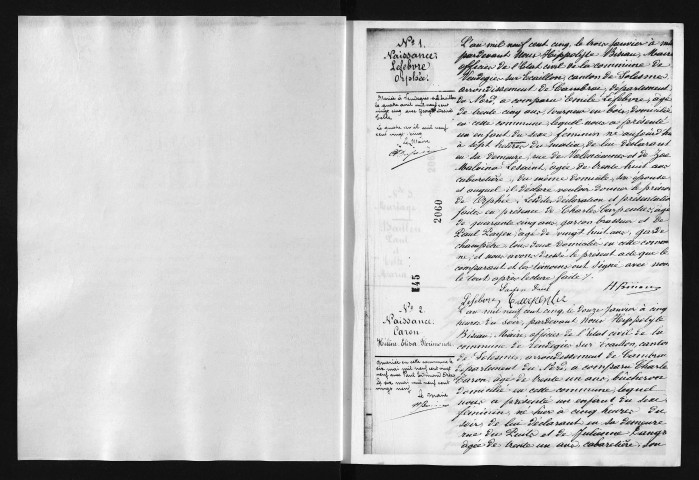 N° 1.
Naissance
Lefebvre
Orphée
Mariée à Vendegies sur Écaillon
le quatre avril mil neuf cent
vingt cinq avec
le quatre avril mil neuf
cent vingt cinq
Le Maire
L'an mil neuf cent cinq, le trois janvier à
pardevant Nous Hippolyte Bisiau, Maire
officier de l'Etat civil de la commune de
Vendegies sur Ecaillon, canton de Solesmes
arrondissement de Cambrai, département
du Nord, a comparu Emile Lefebvre, âgé
de trente cinq ans, tourneur en bois, domicilié
en cette commune, lequel nous a présenté
un enfant du sexe féminin né aujourd'hui
à sept heures du matin, de lui déclarant
en sa demeure, rue de Valenciennes et de
Malvina Lesaint, âgée de trente huit ans
cabaretière, du même domicile, son épouse
et auquel il déclare vouloir donner le prénom
de Orphée. Lesdites déclaration et présentation
faites en présence de Charles Carpentier, âgé
de quarante cinq ans, garçon brasseur et de
Paul Layen, âgé de vingt huit ans, garde
champêtre, tous deux domiciliés en cette commu
ne, et nous avons dressé le présent acte que le
comparant et les témoins ont signé avec nous
le tout après lecture faite.
Layen Paul
Lefebvre Carpentier
2060
E45
N° 2.
Naissance
Caron
Hélène Elisa
Mariée en cette commune le
six mai mil neuf cent vingt
neuf avec Paul Edmond
Le six mai mil neuf cent
vingt neuf.
Le Maire
L'an mil neuf cent cinq, le douze janvier à cinq
heures du soir, pardevant nous Hippolyte
Bisiau, Maire, officier de l'Etat civil de la
commune de Vendegies sur Ecaillon, canton
de Solesmes, arrondissement de Cambrai
département du Nord, a comparu Charles
Caron, âgé de trente un ans, bûcheron
domicilié en cette commune, lequel
nous a présenté un enfant du sexe
féminin, né hier à cinq heures du
soir, de lui déclarant en sa demeure
rue du Puits et de Julienne
âgée de trente un ans, cabaretière, son